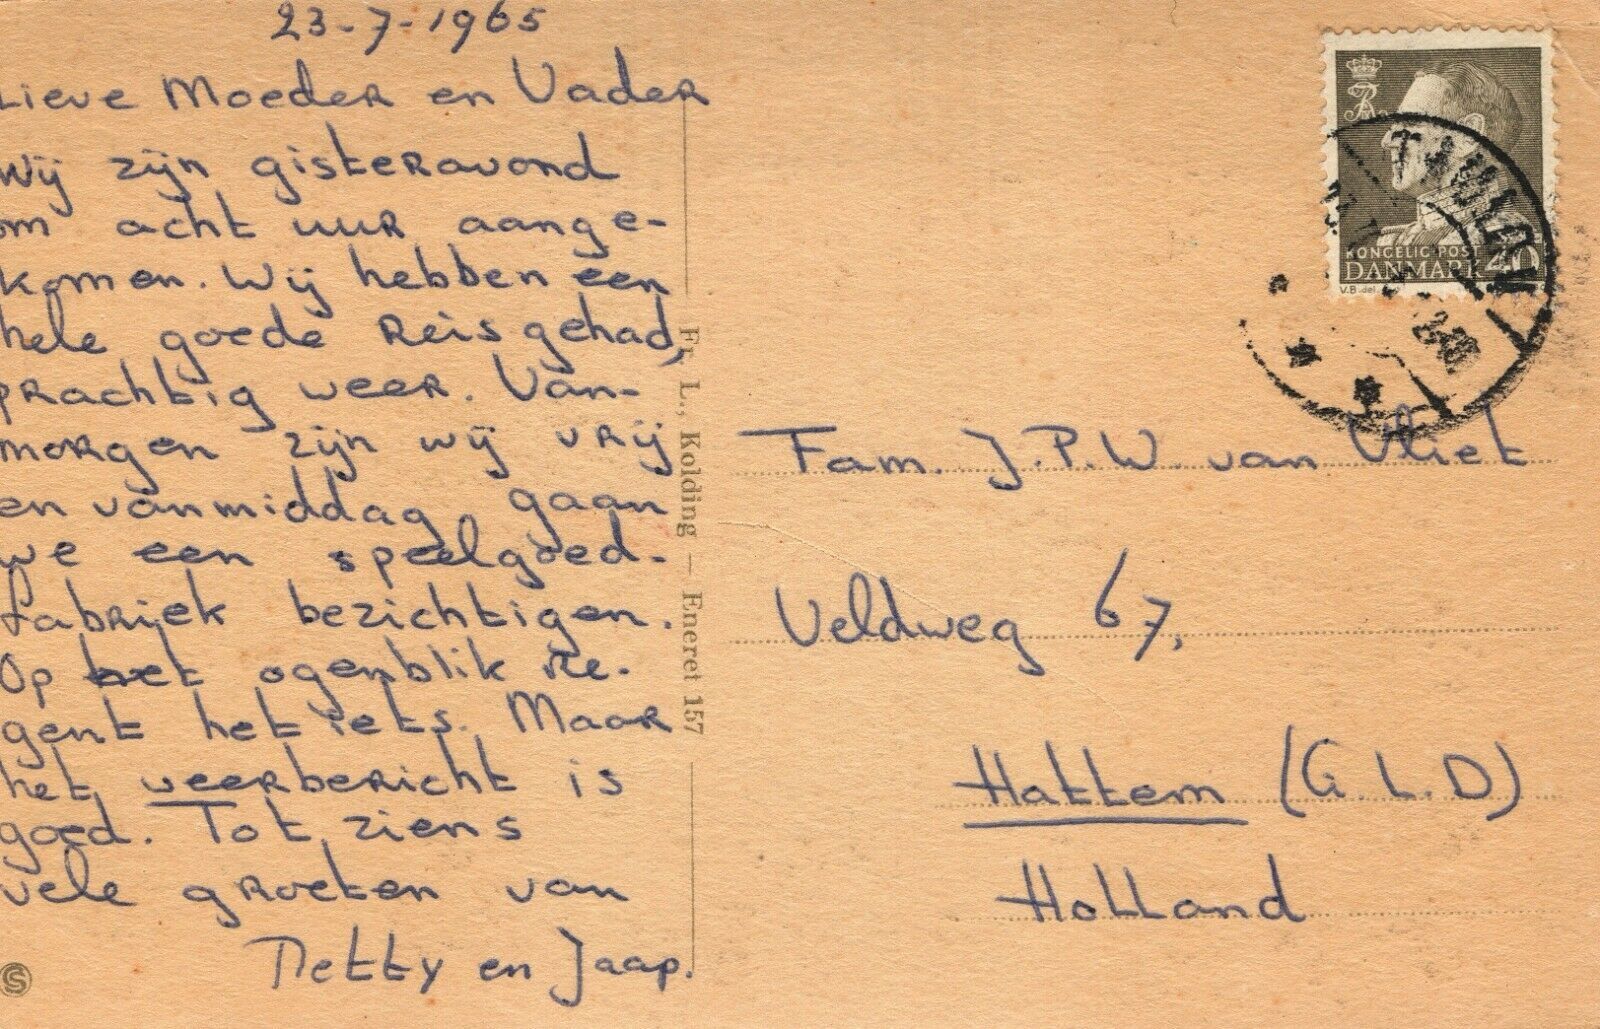 23-7-1965
Lieve Moeder en Vader
Wij zijn gisteravond
om acht uur aange-
komen. Wij hebben een
hele goede reis gehad,
prachtig weer. Van-
morgen zijn wij vrij
en vanmiddag gaan
we een speelgoed-
fabriek bezichtigen.
Op het ogenblik re-
gent het iets. Maar
het weerbericht is
goed. Tot ziens
vele groeten van
Netty en Jaap.
Fr. L., Kolding – Eneret 157
KONGELIG POST
DANMARK 40
V.B. del.
Fam. J.P.W. van Vliet
Veldweg 67,
Hattem (G.L.D)
Holland